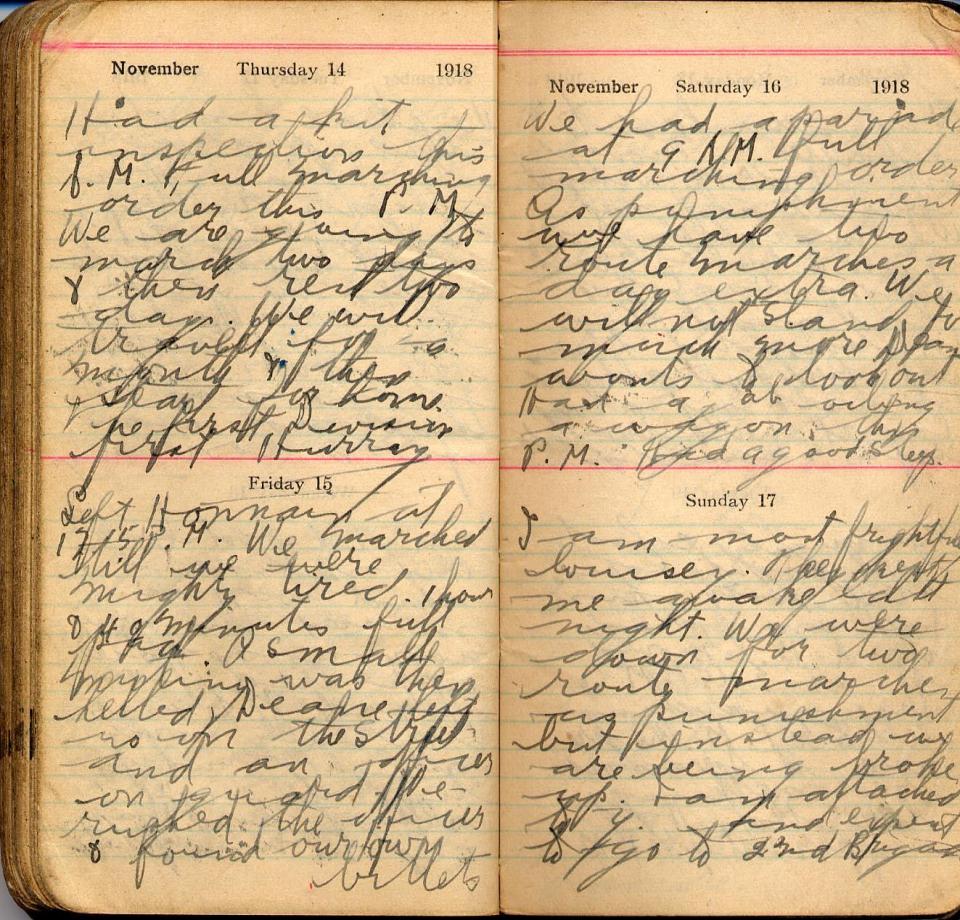 November Thursday 14 1918
Had a kit
inspection this
A. M. Full marching
order this P. M.
We are going to
march two days
& then rest two
day. We will
travel for a
month & then
start for home.
The first Division
first Hurray
Friday 15
Left Hornain at
M. We marched
till we were
mighty tired. 1 hour
& minutes full
pack. A small
was then
held. Deane left
us on the street
and an officer
on guard We
rushed the officer
& found our own
billets
November Saturday 16 1918
We had a parade
at 9 A.M. full
marching order
As punishment
we have two
route marches a
day extra. We
will not stand for
much more
Had a job oiling
a wagon this
P. M. Had a good sleep.
Sunday 17
I am most frightful
lousey. They kept
me awake last
night. We were
down for two
route marches
as punishment
but instead we
are being broke
up. I am attached
to Y. and expect
to go to 2nd Brigade